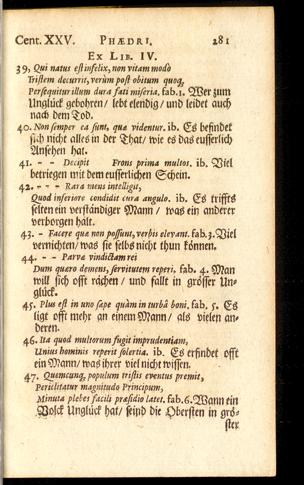 Cent. XXV. PHÆDRI. 281
Ex LIB. IV.
39, Qui natus est infelix, non vitam modò
Tristem decurrit, verùm post obitum quoq;
Persequitur illum dura fati miseria. fab. 1. Wer zum
Unglück gebohren/ lebt elendig/ und leidet auch
nach dem Tod.
40. Non semper ea sunt, quæ videntur. ib. Es befindet
sich nicht alles in der That/ wie es das eusserlich
Ansehen hat.
41. - - Decipit Frons prima multos. ib. Viel
betriegen mit dem eusserlichen Schein.
42. - - - Rara mens intelligit,
Quod inferiore condidit cura angulo. ib. Es triffts
selten ein verständiger Mann/ was ein anderer
verborgen halt.
43. - Facere quæ non possunt, verbis elevant. fab. 3. Viel
vernichten/ was sie selbs nicht thun können.
44. - - Parva vindictam rei
Dum quæro demens, servitutem reperi. fab. 4. Man
will sich offt rächen/ und fallt in grösser Un-
glück.
45. Plus est in uno sæpe quàm in turbâ boni. fab. 5. Es
ligt offt mehr an einem Mann/ als vielen an-
deren.
46. Ita quod multorum fugit imprudentiam,
Unius hominis reperit solertia. ib. Es erfindet offt
ein Mann/ was ihrer viel nicht wissen.
47. Quemcunq; populum tristis eventus premit,
Periclitatur magnitudo Principum,
Minuta plebes facili præsidio latet. fab. 6. Wann ein
Volck Unglück hat/ seind die Obersten in grö-
ster